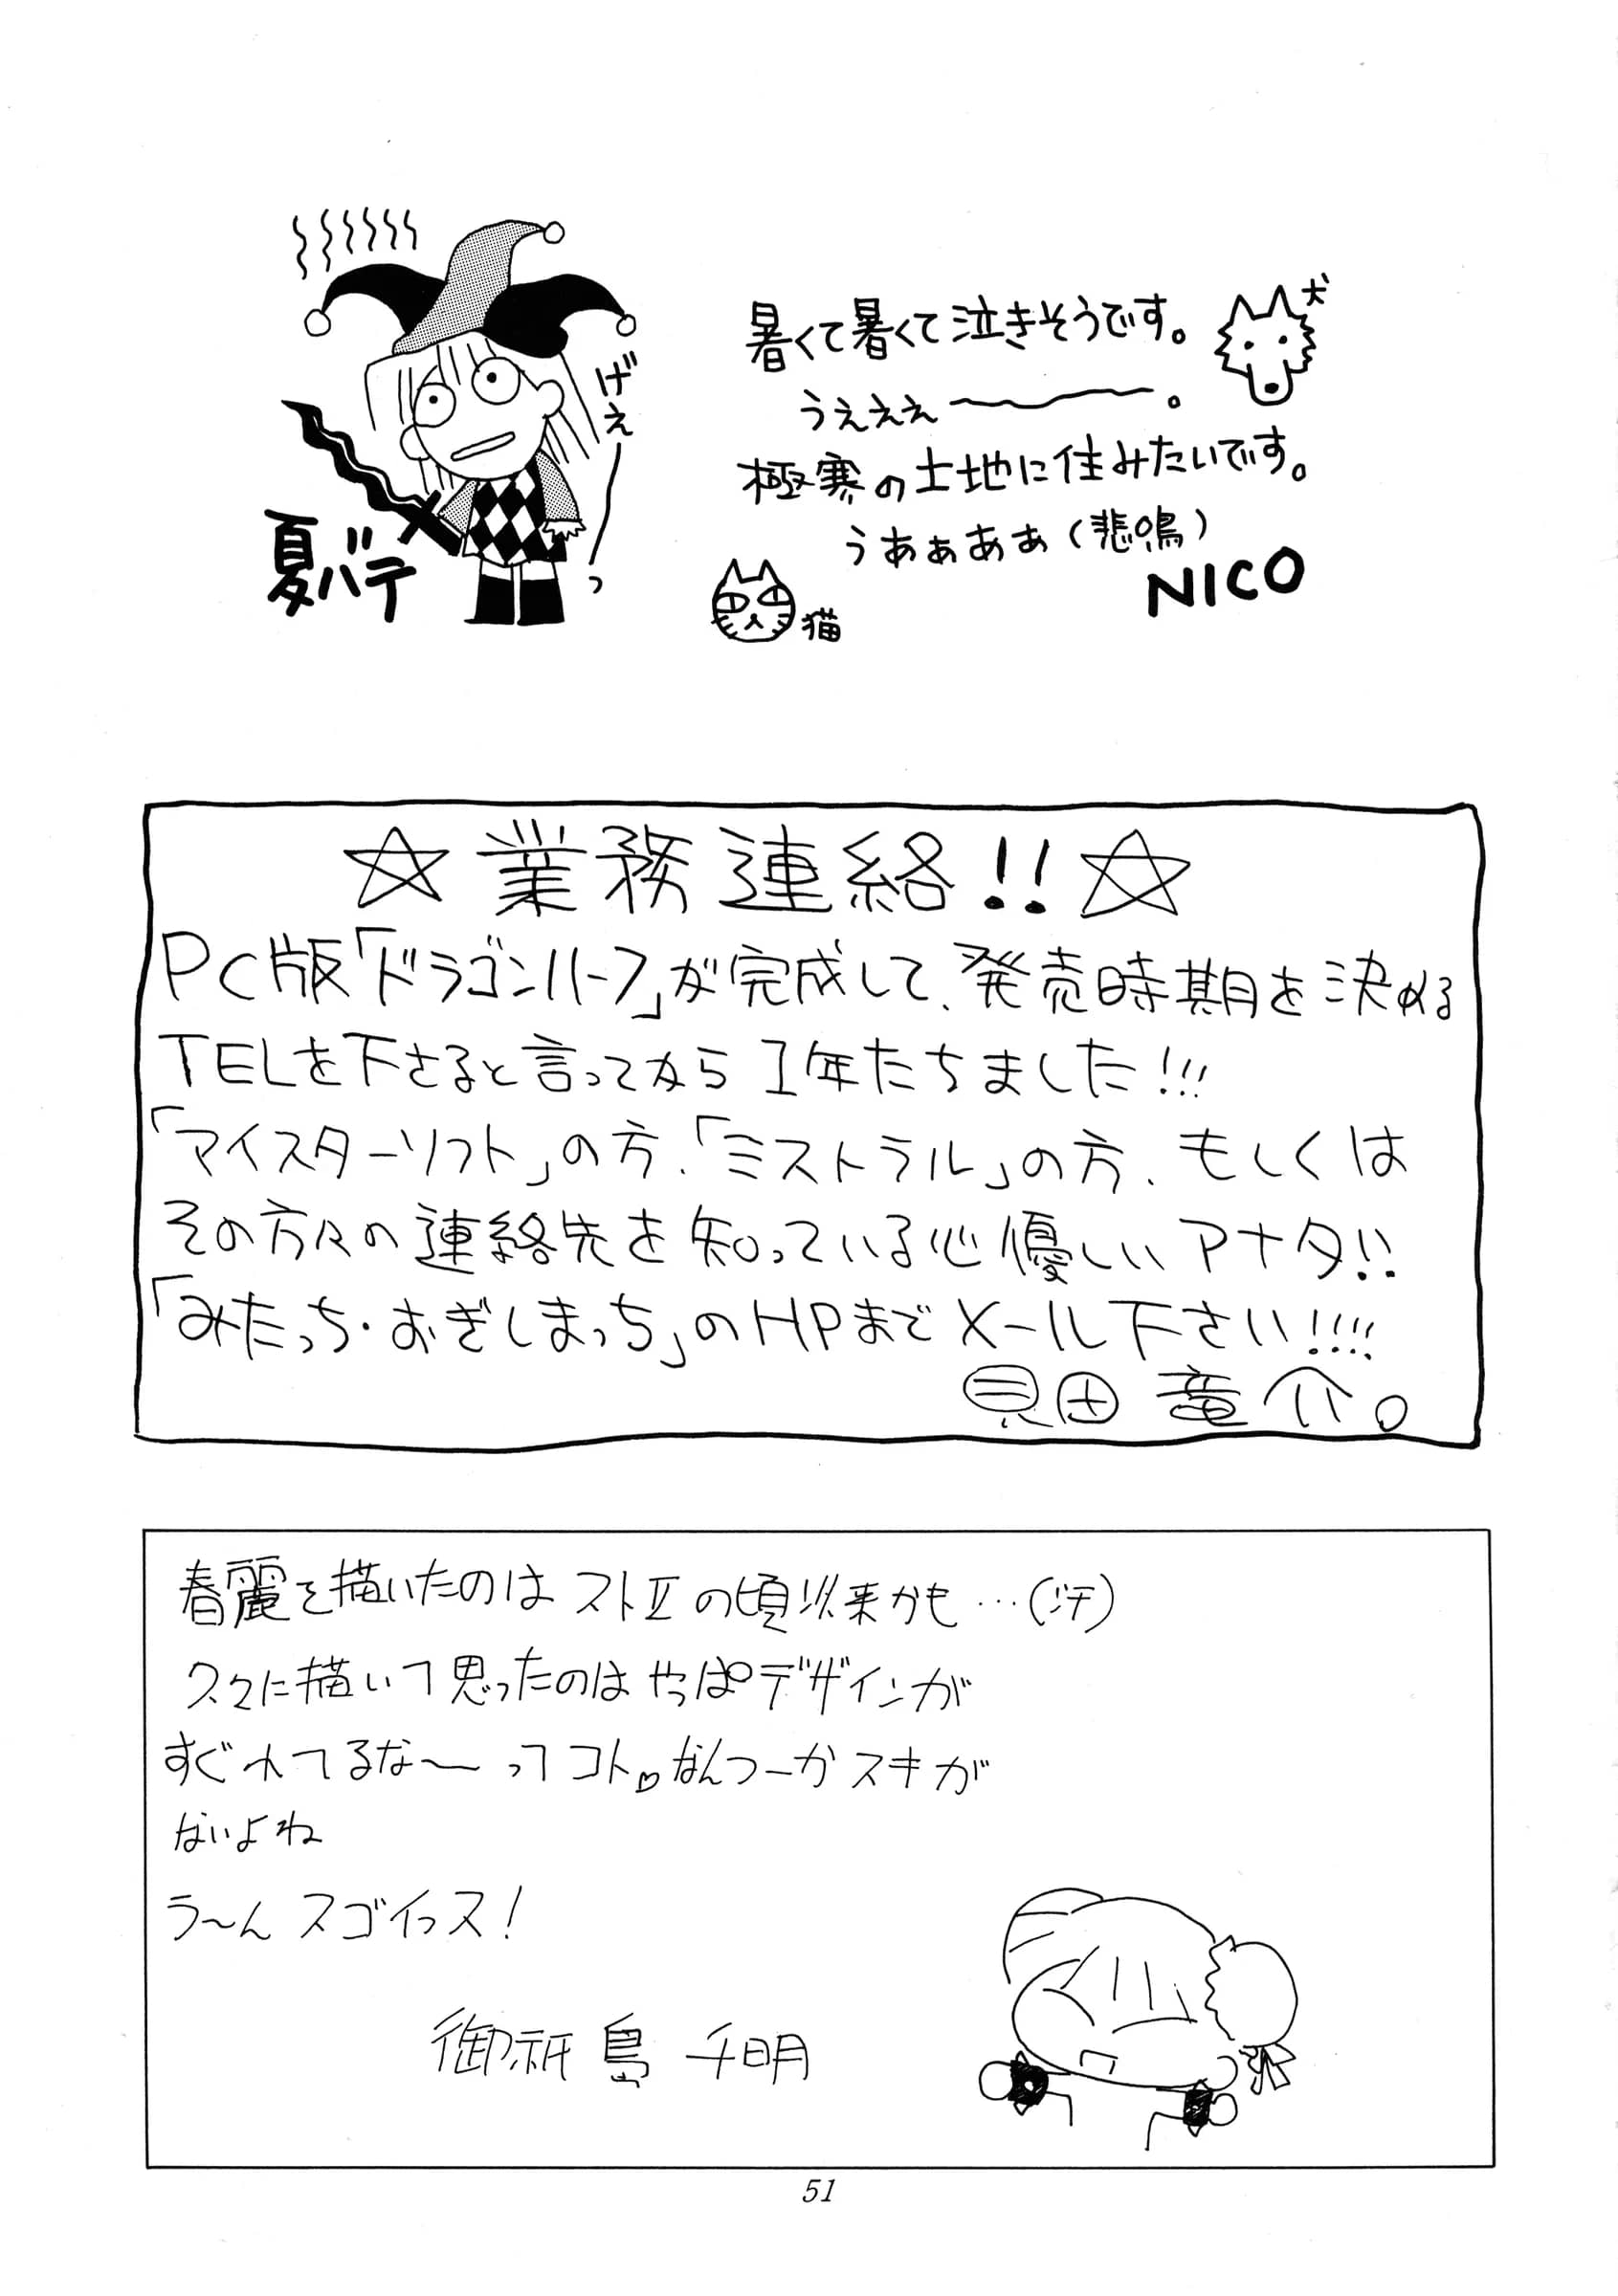 夏バテ
げえーっ
暑くて暑くて泣きそうです。
犬
うぇぇぇ〜〜〜。
極寒の土地に住みたいです。
うあぁあぁ（悲鳴）
NICO
猫
☆業務連絡!!☆
PC版「ドラゴンハーフ」が完成して、発売時期を決める
TELを下さると言ってから1年たちました!!!
「マイスターソフト」の方、「ミストラル」の方、もしくは
その方々の連絡先を知っている心優しいアナタ!!
「みたっち・おぎしまっち」のHPまでメール下さい!!!!
見田竜介。
春麗を描いたのはストⅡの頃以来かも…(汗)
久々に描いて思ったのはやっぱデザインが
すぐれてるな〜ってコト♡なんつーかスキが
ないよね
う〜んスゴイっス!
御祇島千明
51